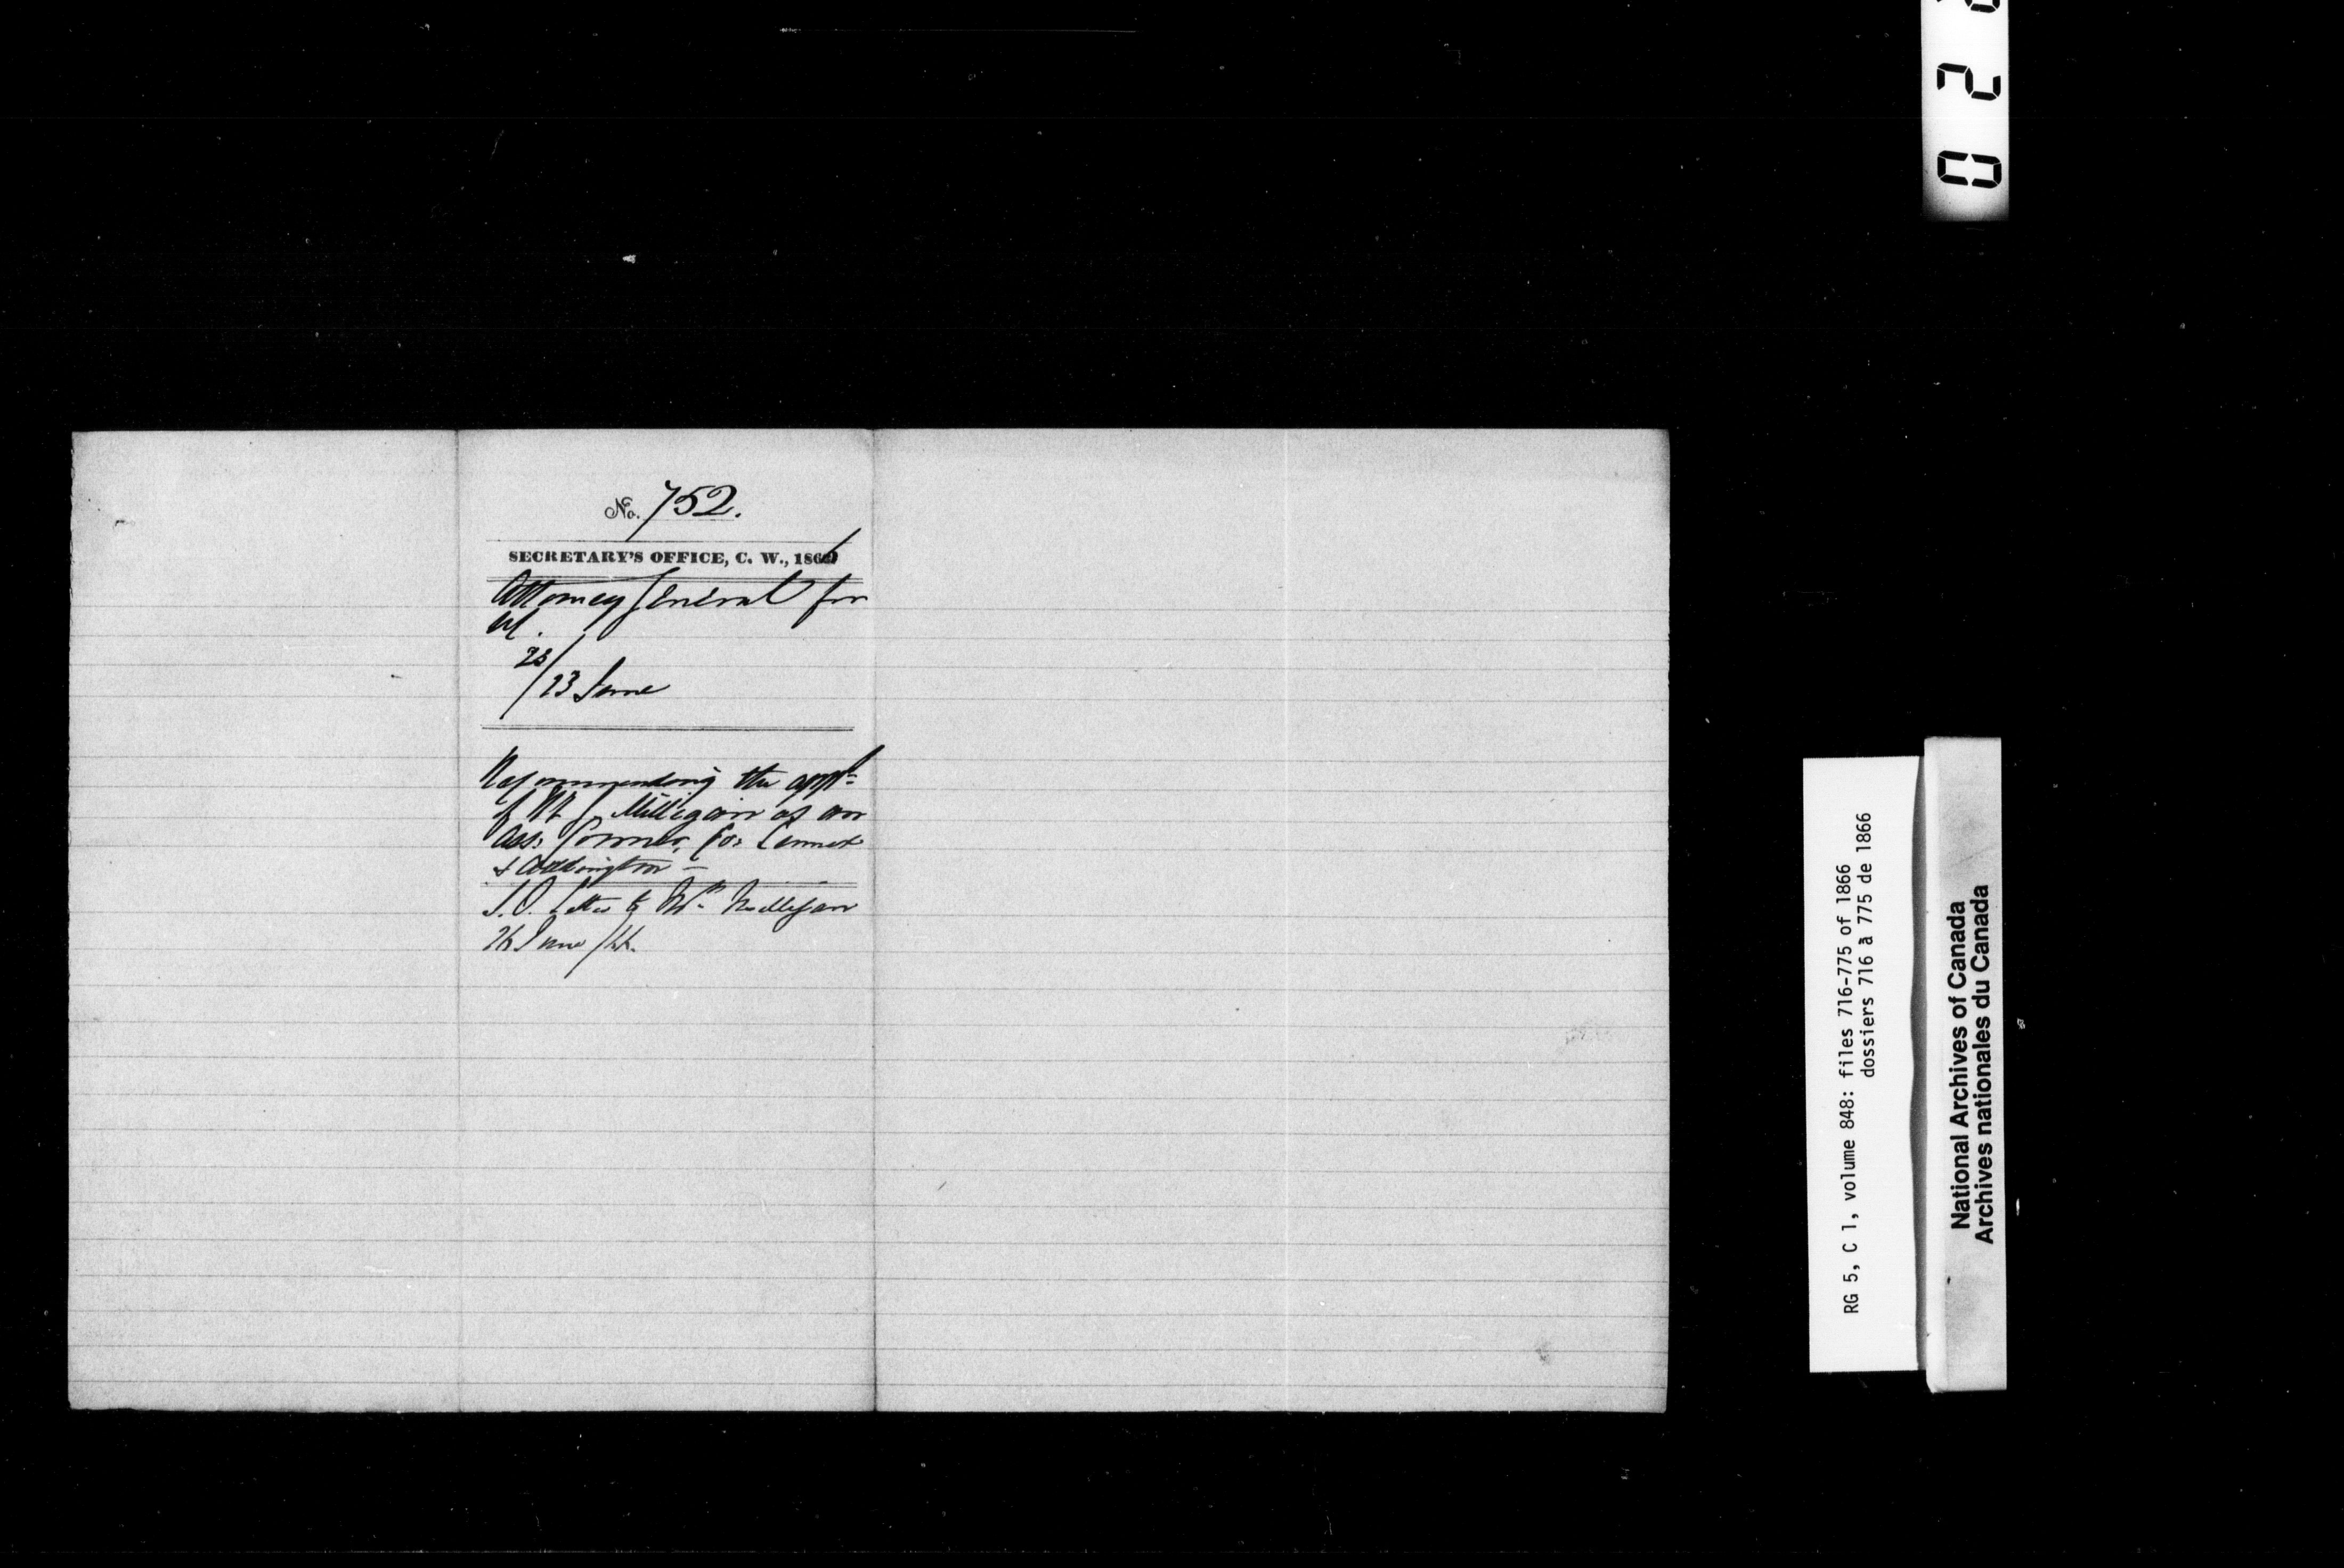 No. 752.
SECRETARY'S OFFICE, C. W., 1866
Attorney General for
W.
23 June
Recommending the appt
of Milligan as an
Ass: Coroner, Cos Lennox
& Addington —
S.O. Letter to Milligan
26 June /66.
RG 5, C 1, volume 848: files 716-775 of 1866
dossiers 716 à 775 de 1866
National Archives of Canada
Archives nationales du Canada
0 2